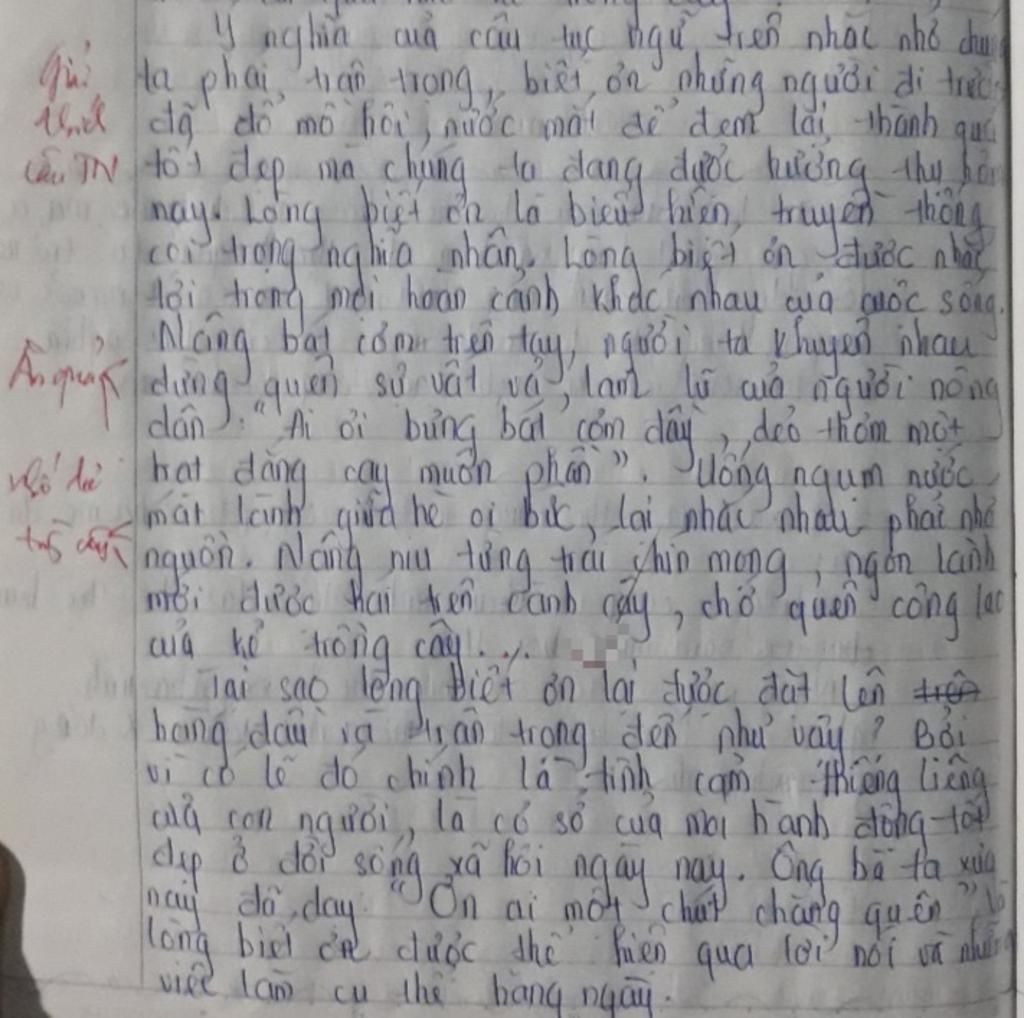 Ý nghĩa của câu tục ngữ trên nhắc nhở chúng
ta phải trân trọng, biết ơn những người đi trước
đã đổ mồ hôi, nước mắt để đem lại thành quả
tốt đẹp mà chúng ta đang được hưởng thụ hôm
nay. Lòng biệt ơn là biểu hiện, truyền thống
coi trọng nghĩa nhân. Lòng biết ơn được nhắc
tới trong mọi hoàn cảnh khác nhau của cuộc sống.
Nâng bát cơm trên tay, người ta khuyên nhau
đừng quên sự vất vả, lam lũ của người nông
dân: "Ai ơi bưng bát cơm đầy, dẻo thơm một
hạt đắng cay muôn phần". Uống ngụm nước
mát lành giữa hè oi bức, lại nhắc nhau phải nhớ
nguồn. Nâng niu từng trái chín mọng, ngon lành
mới được hái trên cành cây, chớ quên công lao
của kẻ trồng cây...
Tại sao lòng biết ơn lại được đặt lên trên
hàng đầu và trân trọng đến như vậy? Bởi
vì có lẽ đó chính là tình cảm thiêng liêng
của con người, là cơ sở của mọi hành động tốt
đẹp ở đời sống xã hội ngày nay. Ông bà ta xưa
nay đã dạy "Ơn ai một chút chẳng quên" là
lòng biết ơn được thể hiện qua lời nói và những
việc làm cụ thể hàng ngày.
Giải
thích
câu TN